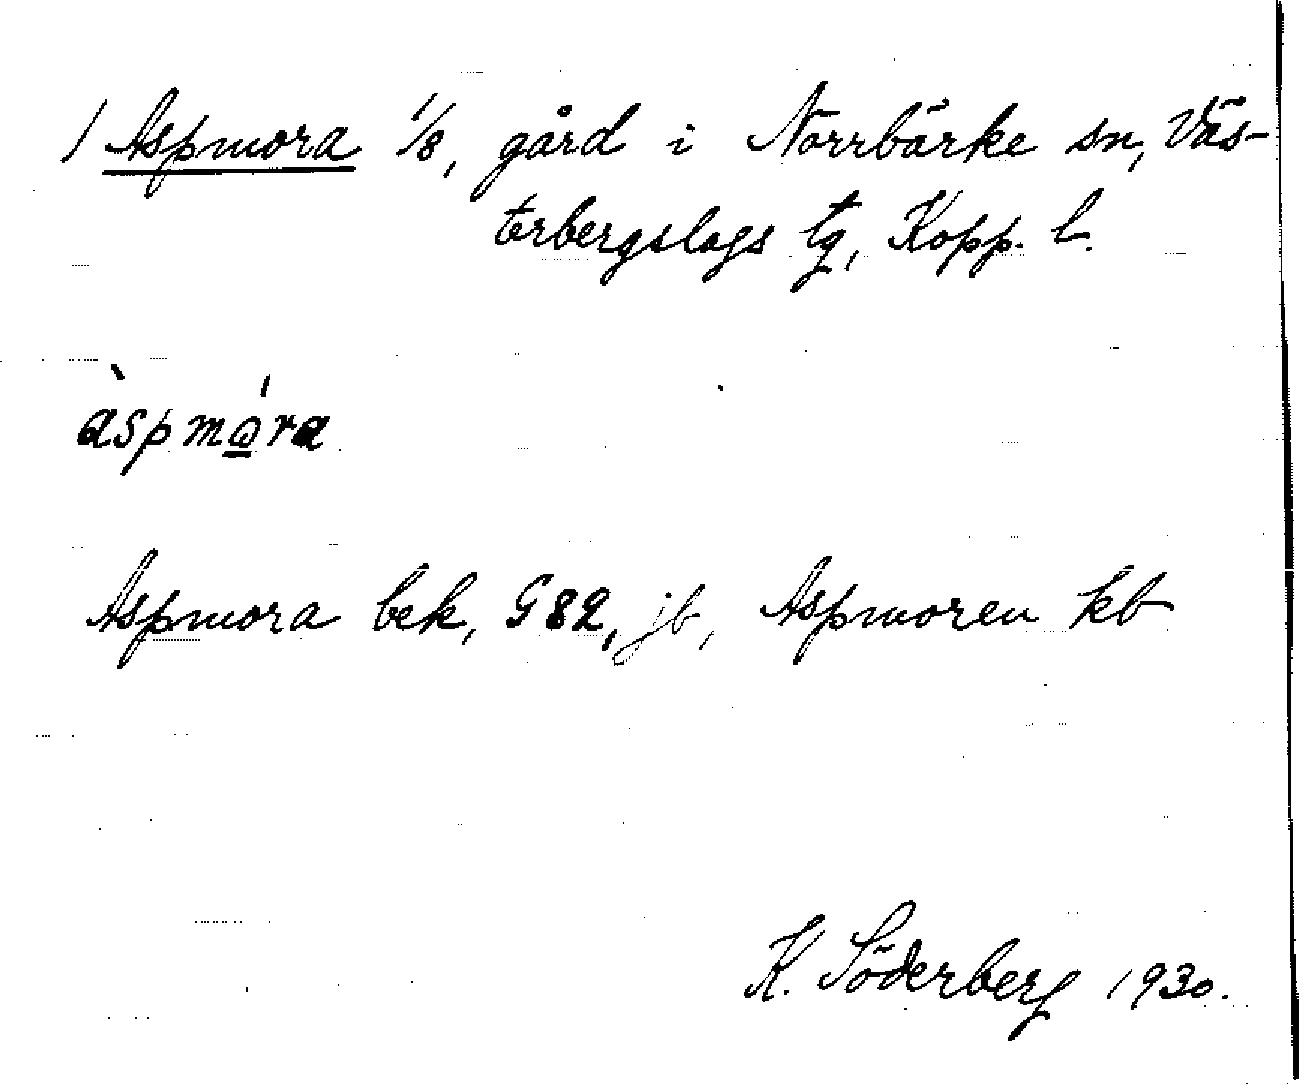 / Aspmora 1/8, gård i Norrbärke sn, Väs-
terbergslags tg, Kopp. l.
àspmó̲ra
Aspmora bek, G82, jb, Aspmoren kb
K. Söderberg 1930.